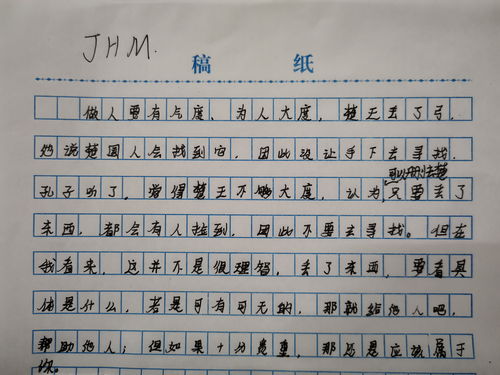 JHM.
稿 纸
做人要有气度、为人大度，楚王丢了弓，
他说楚国人会找到它，因此没让手下去寻找。
可以删去楚
孔子听了，觉得楚王不够大度，认为，只要丢了
东西，都会有人捡到，因此不要去寻找。但在
我看来，这并不是很理智，丢了东西，要看具
体是什么，若是可有可无的，那就给他人吧，
帮助他人；但如果十分贵重，那还是应该属于
你。